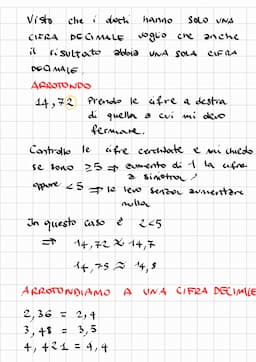 Visto che i dati hanno SOLO UNA
CIFRA DECIMALE voglio che anche
il risultato abbia UNA SOLA CIFRA
DECIMALE.
ARROTONDO
14,72 Prendo le cifre a destra
di quella a cui mi devo
fermare.
Controllo le cifre cerchiate e mi chiedo
se sono ≥5 ⇒ aumento di 1 la cifra
a sinistra
oppure <5 ⇒ le levo senza aumentare
nulla
In questo caso è 2<5
⇒ 14,72 ≈ 14,7
14,75 ≈ 14,8
ARROTONDIAMO A UNA CIFRA DECIMALE
2,36 = 2,4
3,48 = 3,5
4,421 = 4,4